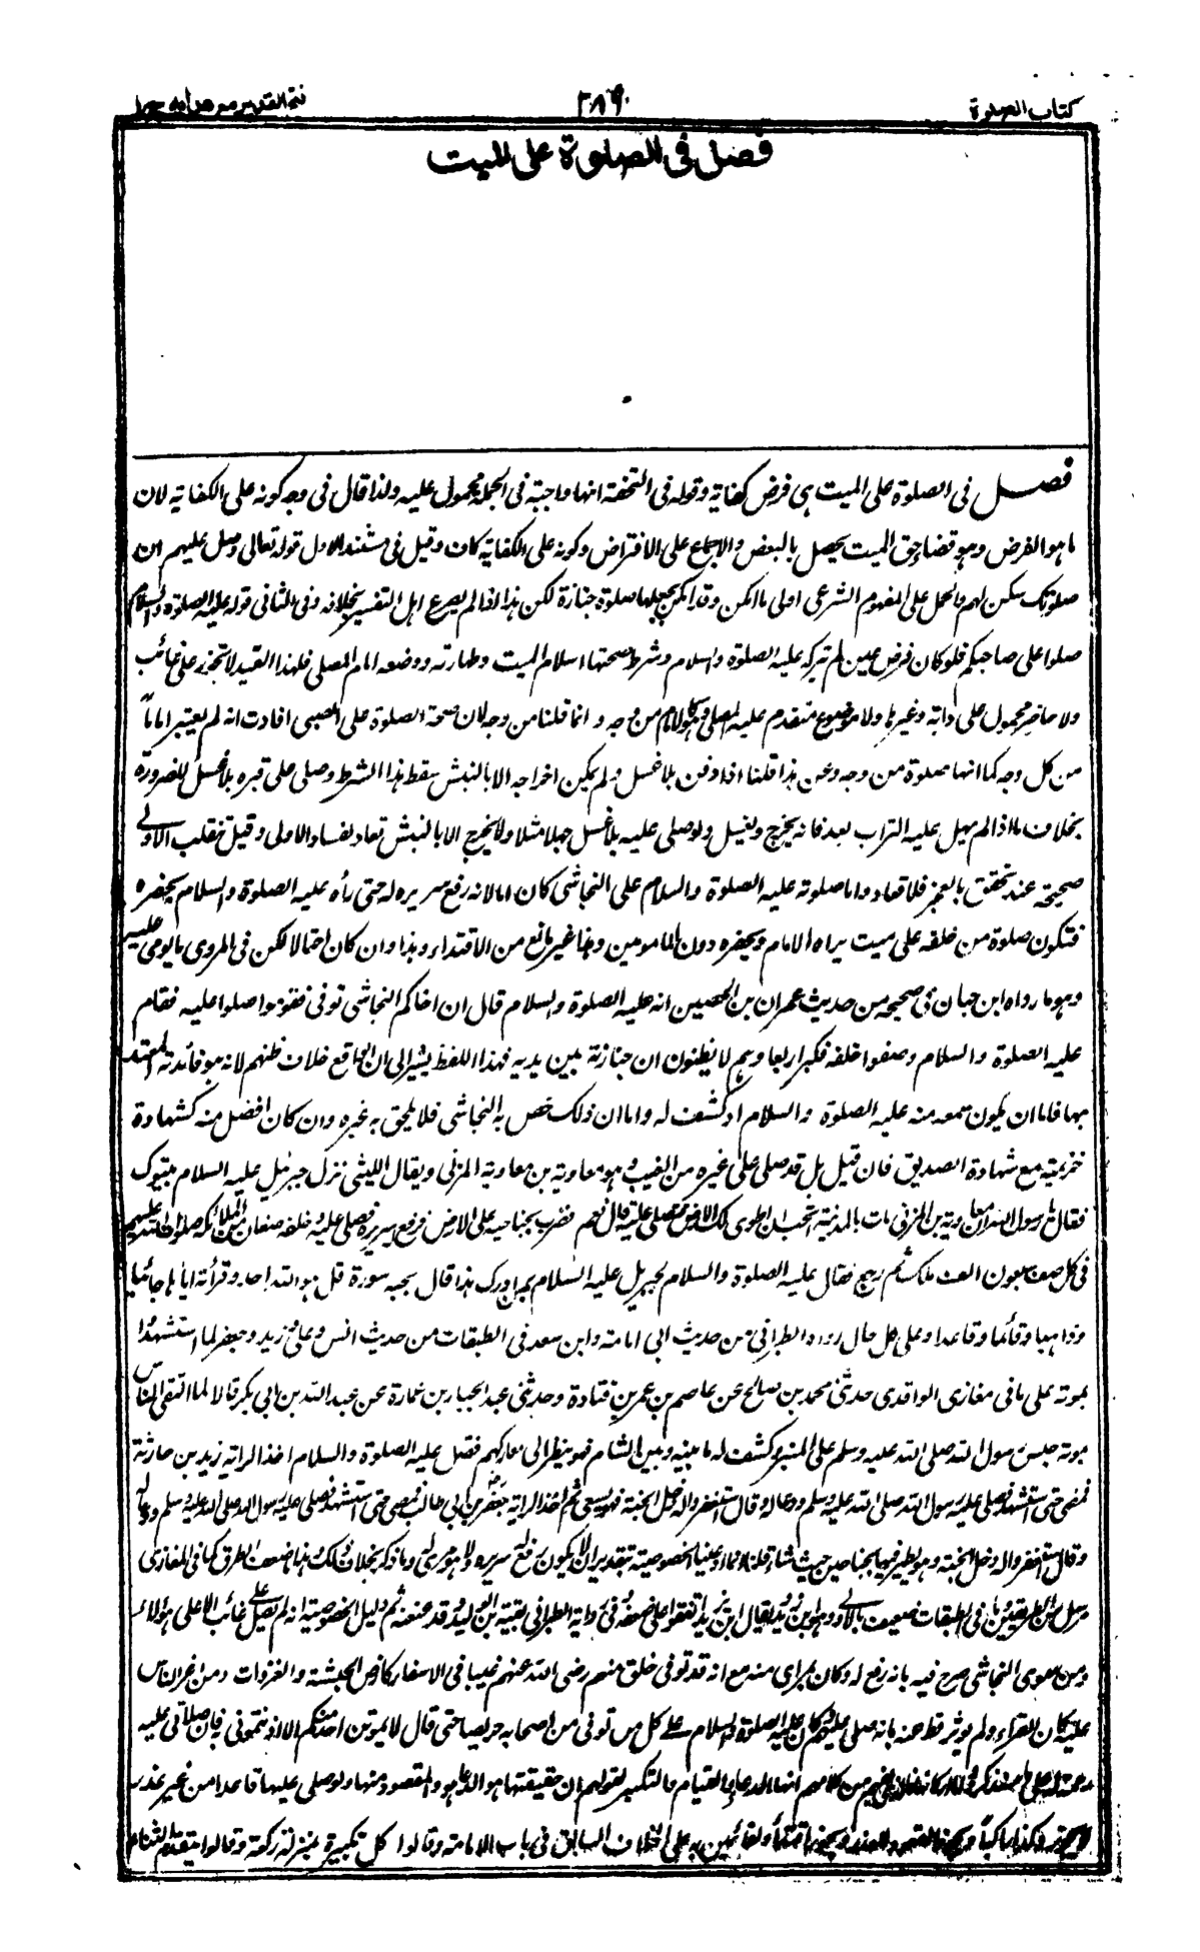 كتاب الصلوة
٢٨٩
فتح القدير مع هدايه ج ١
فصل فى الصلوة على الميت
فصل فى الصلوة على الميت هى فرض كفاية وقوله فى التحفة انها واجبة فى الجملة محمول عليه ولذا قال فى وجه كونه على الكفاية لان
ما هو الفرض وهو قضاء حق الميت يحصل بالبعض والاجماع على الافتراض وكونه على الكفاية كاف وقيل فى مستند الاول قوله تعالى وصل عليهم ان
صلوتك سكن لهم والحمل على المفهوم الشرعى اولى ما امكن وقد امكن بجعلها صلوة جنازة لكن هذا اذا لم يصرح اهل التفسير بخلافه وفى الثانى قوله عليه الصلوة والسلام
صلوا على صاحبكم فلو كان فرض عين لم يتركه عليه الصلوة والسلام وشرط صحتها اسلام الميت وطهارته ووضعه امام المصلى فلهذا القيد لا تجوز على غائب
ولا حاضر محمول على دابة وغيرها ولا موضوع متقدم عليه المصلى وهو كالامام من وجه وانما قلنا من وجه لان صحة الصلوة على الصبى افادت انه لم يعتبر اماما
من كل وجه كما انها صلوة من وجه وعن هذا قلنا اذا دفن بلا غسل ولم يكن اخراجه الا بالنبش سقط هذا الشرط وصلى على قبره بلا غسل للضرورة
بخلاف ما اذا لم يهل عليه التراب بعد فانه يخرج ويغسل ولو صلى عليه بلا غسل جهلا مثلا ولا يخرج الا بالنبش تعاد لفساد الاولى وقيل تنقلب الاولى
صحيحة عند تحقق بالعجز فلا تعاد واما صلوته عليه الصلوة والسلام على النجاشى كان اما لانه رفع سريره له حتى رأه عليه الصلوة والسلام بحضره
فتكون صلوة من خلفه على ميت يراه الامام وبحضره دون المامومين وهذا غير مانع من الاقتداء وهذا وان كان احتمالا لكن فى المروى ما يومى عليه
وهو ما رواه ابن حبان فى صحيحه من حديث عمران بن الحصين انه عليه الصلوة والسلام قال ان اخاكم النجاشى توفى فقوموا صلوا عليه فقام
عليه الصلوة والسلام وصفوا خلفه فكبر اربعا وهم لا يظنون ان جنازته بين يديه فهذا اللفظ يشير الى ان الواقع خلاف ظنهم لانه هو فائدته المعتد
بها فاما ان يكون سمعه منه عليه الصلوة والسلام او كشف له واما ان ذلك خص به النجاشى فلا يلحق به غيره وان كان افضل منه كشهادة
خزيمة مع شهادة الصديق فان قيل بل قد صلى على غيره من الغيب وهو معاوية بن معاوية المزنى ويقال الليثى نزل جبرئيل عليه السلام بتبوك
فقال يا رسول الله ان معاوية بن المزنى مات بالمدينة اتحب ان اطوى لك الارض فتصلى عليه قال نعم فضرب بجناحه على الارض فرفع سريره فصلى عليه وخلفه صفان من الملائكة صلوات الله عليهم
فى كل صف سبعون الف ملك ثم رجع فقال عليه الصلوة والسلام لجبريل عليه السلام بم ادرك هذا قال بحبه سورة قل هو الله احد وقرأته اياها جائيا
وذاهبا وقائما وقاعدا وعلى كل حال رواه الطبرانى من حديث ابى امامة وابن سعد فى الطبقات من حديث انس وعلى زيد وجعفر لما استشهدا
بموتة على ما فى مغازى الواقدى حدثنى محمد بن صالح عن عاصم بن عمر بن قتادة وحدثنى عبد الجبار بن عمارة عن عبد الله بن ابى بكر قالا لما التقى الناس
بموتة جلس رسول الله صلى الله عليه وسلم على المنبر وكشف له ما بينه وبين الشام فهو ينظر الى معاركهم فقال عليه الصلوة والسلام اخذ الراية زيد بن حارثة
فمضى حتى استشهد فصلى عليه رسول الله صلى الله عليه وسلم ودعا له وقال استغفروا له دخل الجنة فهو يسعى ثم اخذ الراية جعفر بن ابى طالب فمضى حتى استشهد فصلى عليه رسول الله صلى الله عليه وسلم ودعا له
وقال استغفروا له دخل الجنة وهو يطير فيها بجناحين حيث شاء قلنا انما ادعينا الخصوصية بتقدير ان لا يكون رفع سريره ولا هو مرئى له وما ذكر بخلاف ذلك هذا مع ضعف الطرق كما فى المغازى
مرسل من الطريقين وما فى الطبقات ضعيف بالعلاء وهو ابن زيد ويقال ابن زيدل اتفقوا على ضعفه وفى رواية الطبرانى بقية بن الوليد وقد عنعنه ثم دليل الخصوصية انه لم يصل على غائب الا على هؤلاء
ومن سوى النجاشى صرح فيه بانه رفع له وكان بمراى منه مع انه قد توفى خلق منهم رضى الله عنهم غيبا فى الاسفار كارض الحبشة والغزوات ومن اعز الناس
عليه كان القراء ولم يوثر قط عنه بانه صلى عليهم وكان عليه الصلوة والسلام على كل من توفى من اصحابه حريصا حتى قال لا يموتن احد منكم الا اذنتمونى به فان صلاتى عليه
رحمة له من كلامهم انها الدعاء والقيام والتكبير لقولهم ان حقيقتها هو الدعاء وهو المقصود منها ولو صلى عليها قاعدا من غير عذر
لا يجوز وكذا راكبا على الخلاف السابق فى باب الامامة وقالوا كل تكبيرة بمنزلة ركعة وقالوا يقدم الثناء